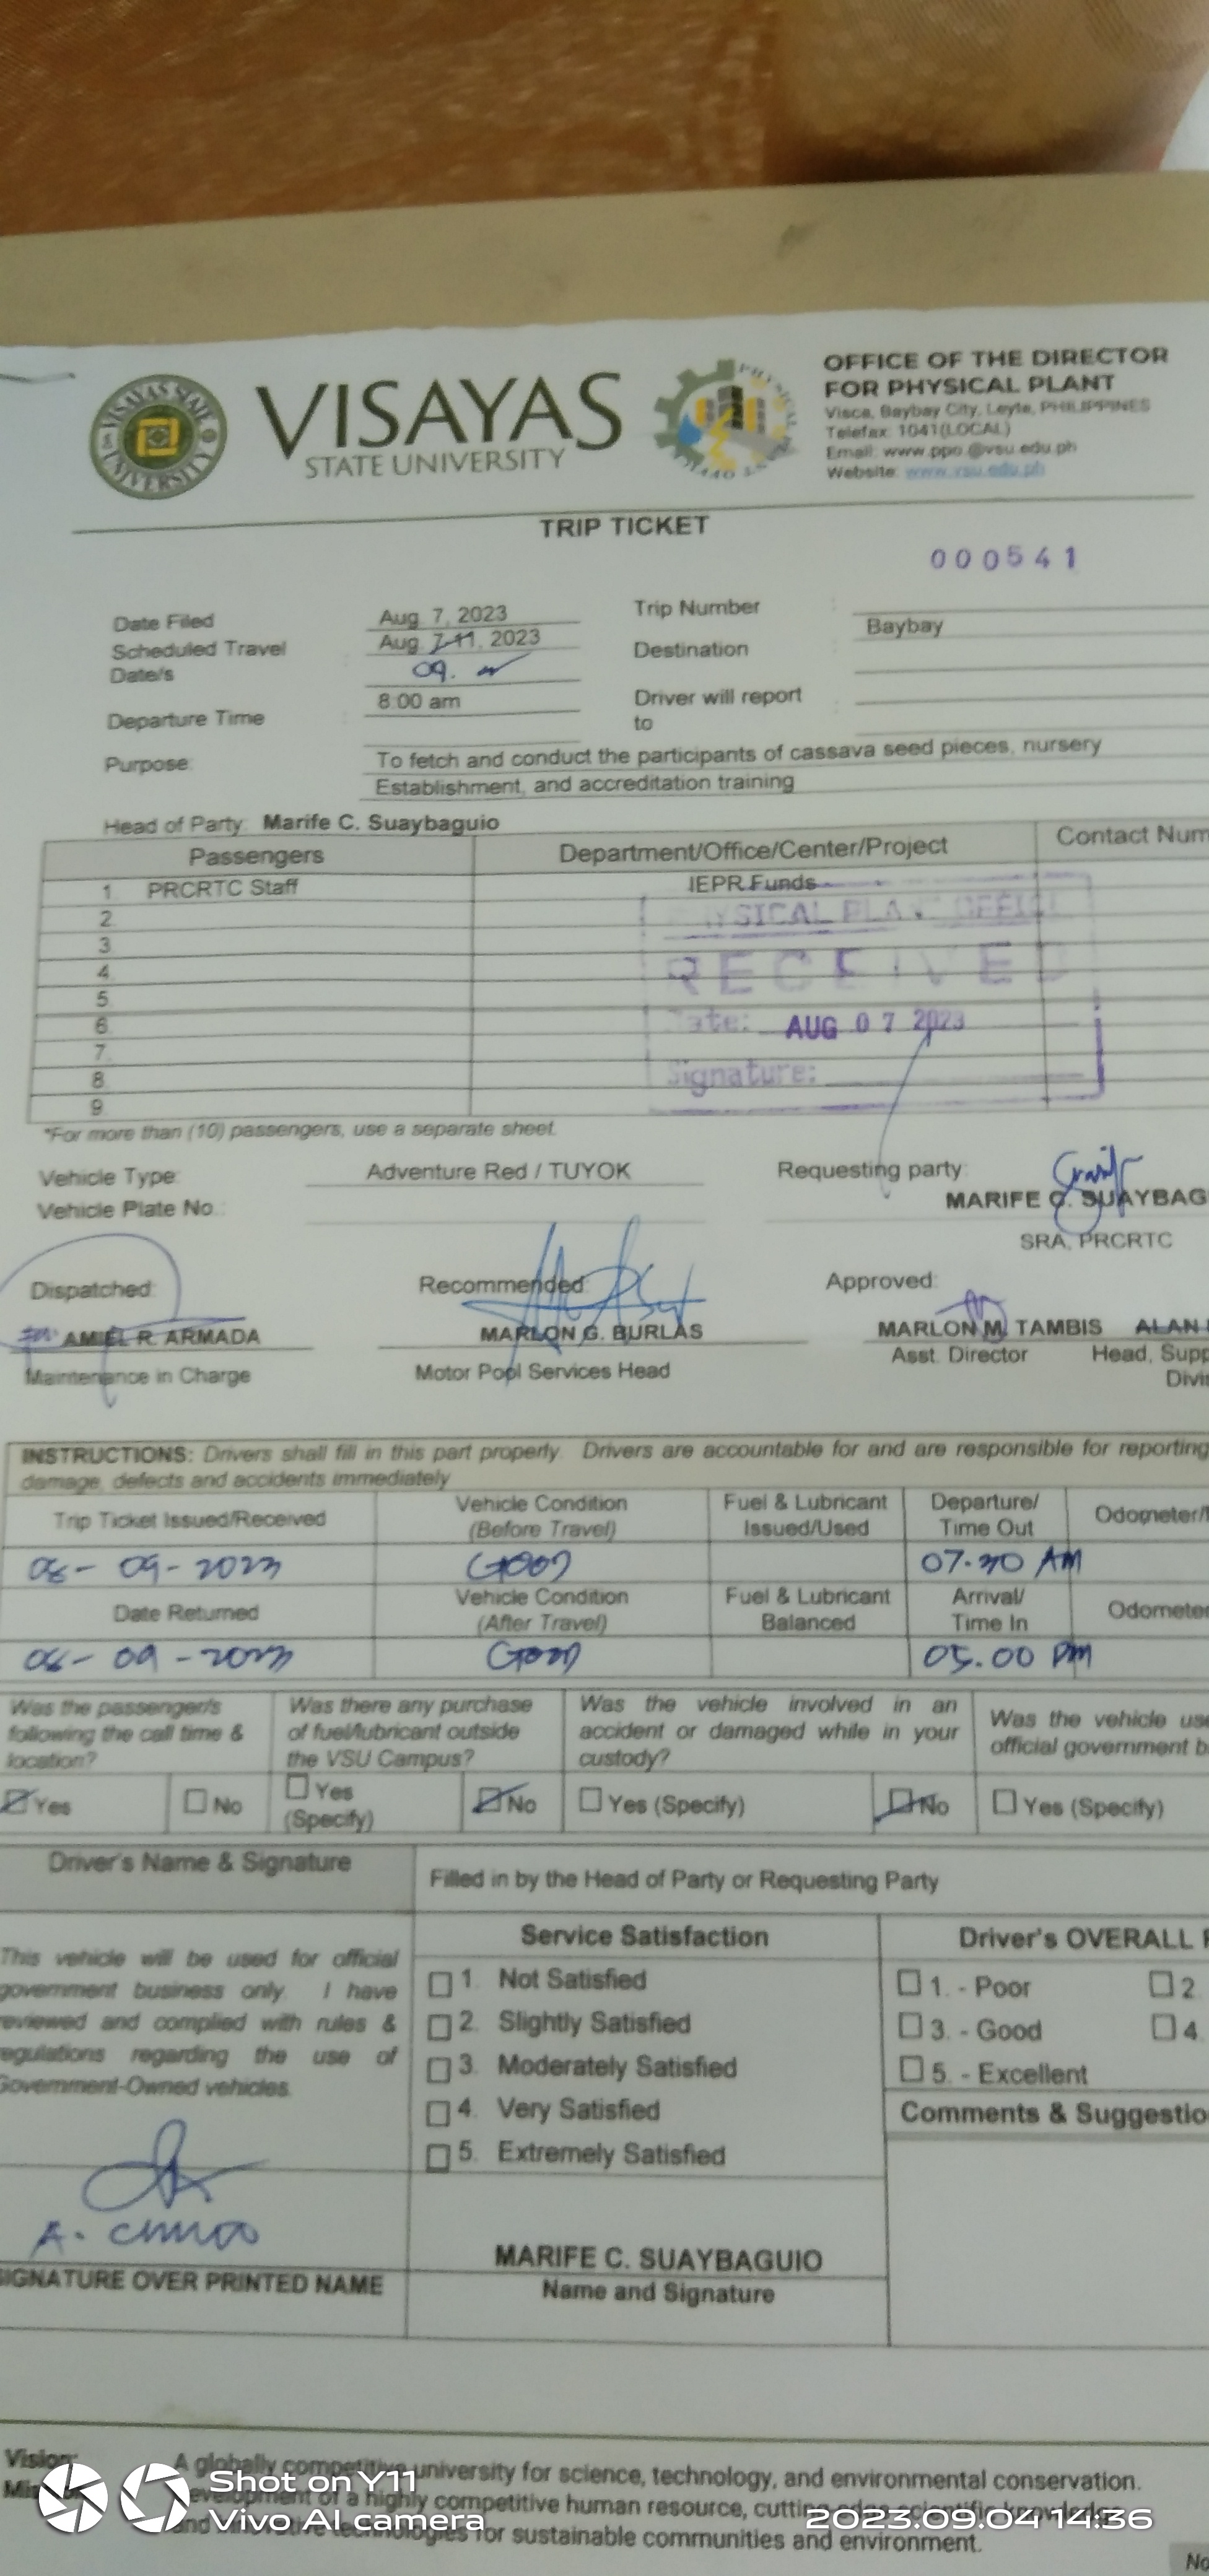 VISAYAS
STATE UNIVERSITY
VISAYAS STATE UNIVERSITY
OFFICE OF THE DIRECTOR
FOR PHYSICAL PLANT
Visca, Baybay City, Leyte, PHILIPPINES
Telefax: 1041(LOCAL)
Email: www.ppo.@vsu.edu.ph
Website: www.vsu.edu.ph
TRIP TICKET
000541
Date Filed Aug. 7, 2023 Trip Number :
Scheduled Travel Date/s : Aug. 7-11, 2023 Destination : Baybay
09.
Departure Time : 8:00 am Driver will report to :
Purpose: To fetch and conduct the participants of cassava seed pieces, nursery
Establishment, and accreditation training
Head of Party: Marife C. Suaybaguio
Passengers Department/Office/Center/Project Contact Num
1. PRCRTC Staff IEPR Funds
2.
3.
4.
5.
6.
7.
8.
9.
YSICAL PLA OFFIC
RECEIVED
ate: AUG 07 2023
Signature:
*For more than (10) passengers, use a separate sheet.
Vehicle Type: Adventure Red / TUYOK Requesting party:
Vehicle Plate No.: MARIFE C. SUAYBAG
SRA, PRCRTC
Dispatched: Recommended: Approved:
AMIEL R. ARMADA MARLON G. BURLAS MARLON M. TAMBIS ALAN
Maintenance in Charge Motor Pool Services Head Asst. Director Head, Supp
Divi
INSTRUCTIONS: Drivers shall fill in this part properly. Drivers are accountable for and are responsible for reporting
damage, defects and accidents immediately
Trip Ticket Issued/Received Vehicle Condition (Before Travel) Fuel & Lubricant Issued/Used Departure/ Time Out Odometer/
08-09-2023 GOOD 07.30 AM
Date Returned Vehicle Condition (After Travel) Fuel & Lubricant Balanced Arrival/ Time In Odomete
08-09-2023 GOOD 05.00 PM
Was the passenger/s following the call time & location?
Was there any purchase of fuel/lubricant outside the VSU Campus?
Was the vehicle involved in an accident or damaged while in your custody?
Was the vehicle use
official government b
Yes No Yes (Specify) No Yes (Specify) No Yes (Specify)
Driver's Name & Signature Filled in by the Head of Party or Requesting Party
Service Satisfaction Driver's OVERALL
This vehicle will be used for official
government business only. I have
reviewed and complied with rules &
regulations regarding the use of
Government-Owned vehicles.
1. Not Satisfied
2. Slightly Satisfied
3. Moderately Satisfied
4. Very Satisfied
5. Extremely Satisfied
1. - Poor 2.
3. - Good 4.
5. - Excellent
Comments & Suggestio
MARIFE C. SUAYBAGUIO
SIGNATURE OVER PRINTED NAME Name and Signature
Vision: A globally competitive university for science, technology, and environmental conservation.
development of a highly competitive human resource, cutting-edge scientific knowledge
and innovative technologies for sustainable communities and environment.
No
Shot on Y11
Vivo AI camera
2023.09.04 14:36